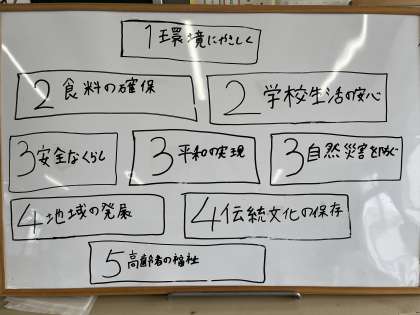 1 環境にやさしく
2 食料の確保
2 学校生活の安心
3 安全なくらし
3 平和の実現
3 自然災害を防ぐ
4 地域の発展
4 伝統文化の保存
5 高齢者の福祉